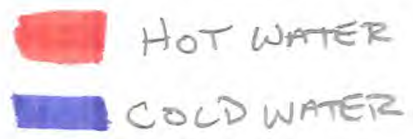 HOT WATER
COLD WATER